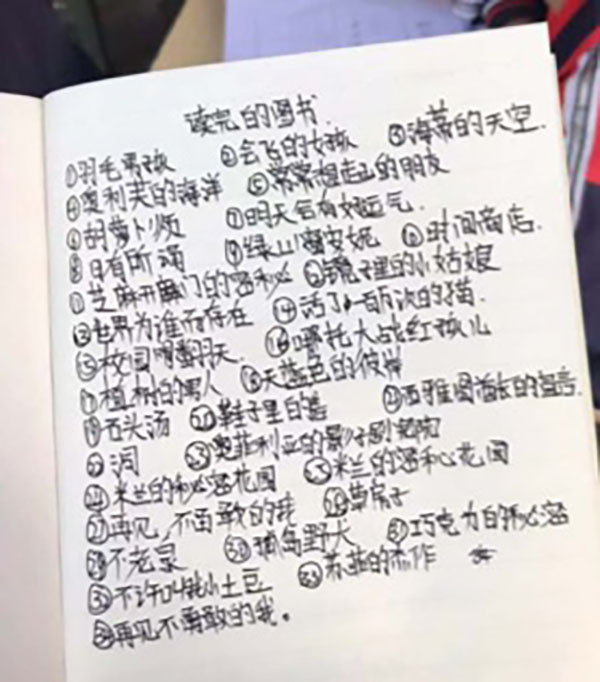 读完的图书.
①羽毛男孩 ②会飞的女孩 ③海蒂的天空.
④奥利芙的海洋 ⑤常常想起的朋友
⑥胡萝卜须 ⑦明天会有好运气.
⑧日有所诵 ⑨绿山墙安妮 ⑩时间商店.
⑪芝麻开门的秘密 ⑫镜子里的小姑娘
⑬世界为谁而存在 ⑭活了一百万次的猫.
⑮校园闹翻天. ⑯哪托大战红孩儿
⑰植树的男人 ⑱天蓝色的彼岸
⑲石头汤 鞋子里的盐 西雅图酋长的宣言.
㉒洞 ㉓奥菲利亚的影子剧院
㉔米兰的秘密花园 ㉕米兰的秘密花园
㉗再见,不勇敢的我 草房子
不老泉 ㉚孤岛野犬 ㉛巧克力的秘密
㉜不许叫我小土豆 ㉝苏菲的杰作
㉞再见不勇敢的我。